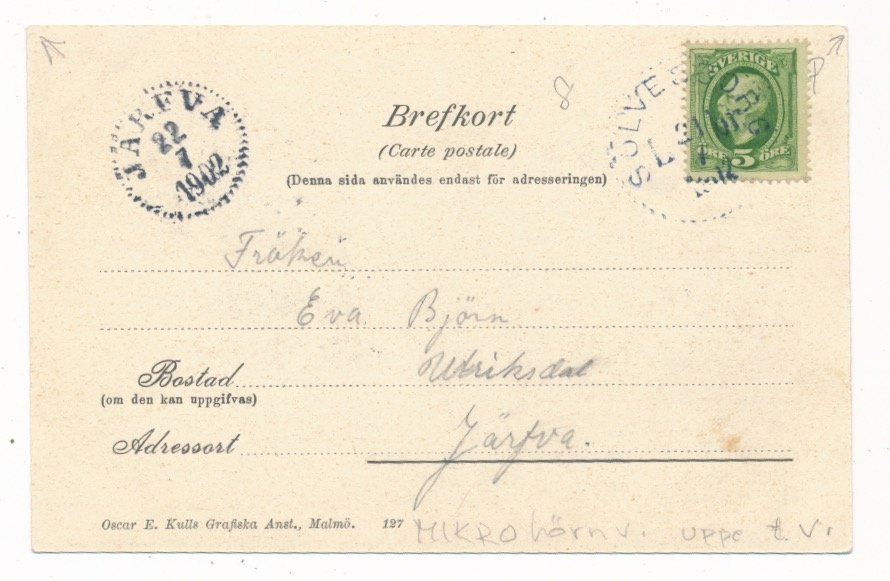 JÄRFVA
22
7
1902
8
SVERIGE
ÖRE 5 ÖRE
SÖLVESBORG
L
21
7
Brefkort
(Carte postale)
(Denna sida användes endast för adresseringen)
Fröken
Eva Björn
Bostad Ulriksdal
(om den kan uppgifvas)
Adressort Järfva.
Oscar E. Kulls Grafiska Anst., Malmö. 127
MIKRO hörnv. uppe t.v.